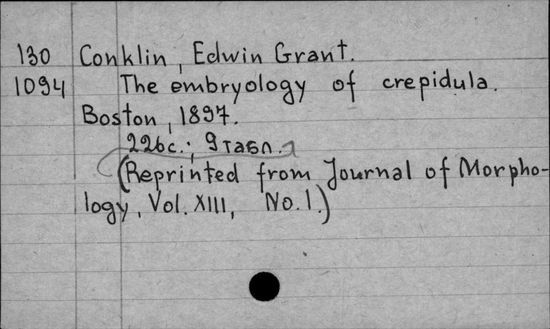 130 Conklin, Edwin Grant.
1094 The embryology of crepidula.
Boston, 1897.
226с.; 9 табл.
(Reprinted from Journal of Morpho-
logy, Vol. XIII, No. 1.)